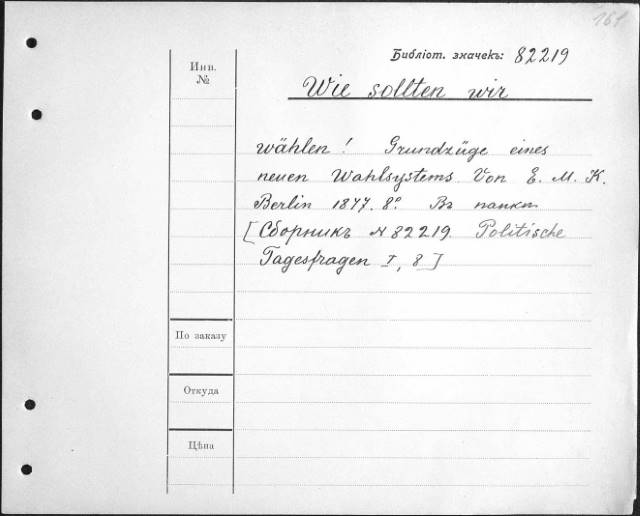 161
Библіот. значекъ: 82219
Инв.
№
Wie sollten wir
wählen! Grundzüge eines
neuen Wahlsystems Von E. M. K.
Berlin 1877. 8º. Въ папкѣ
[Сборникъ N 82219. Politische
Tagesfragen I, 8]
По заказу
Откуда
Цѣна